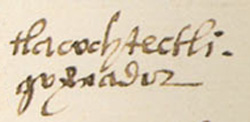 tlacochtectli.
governador